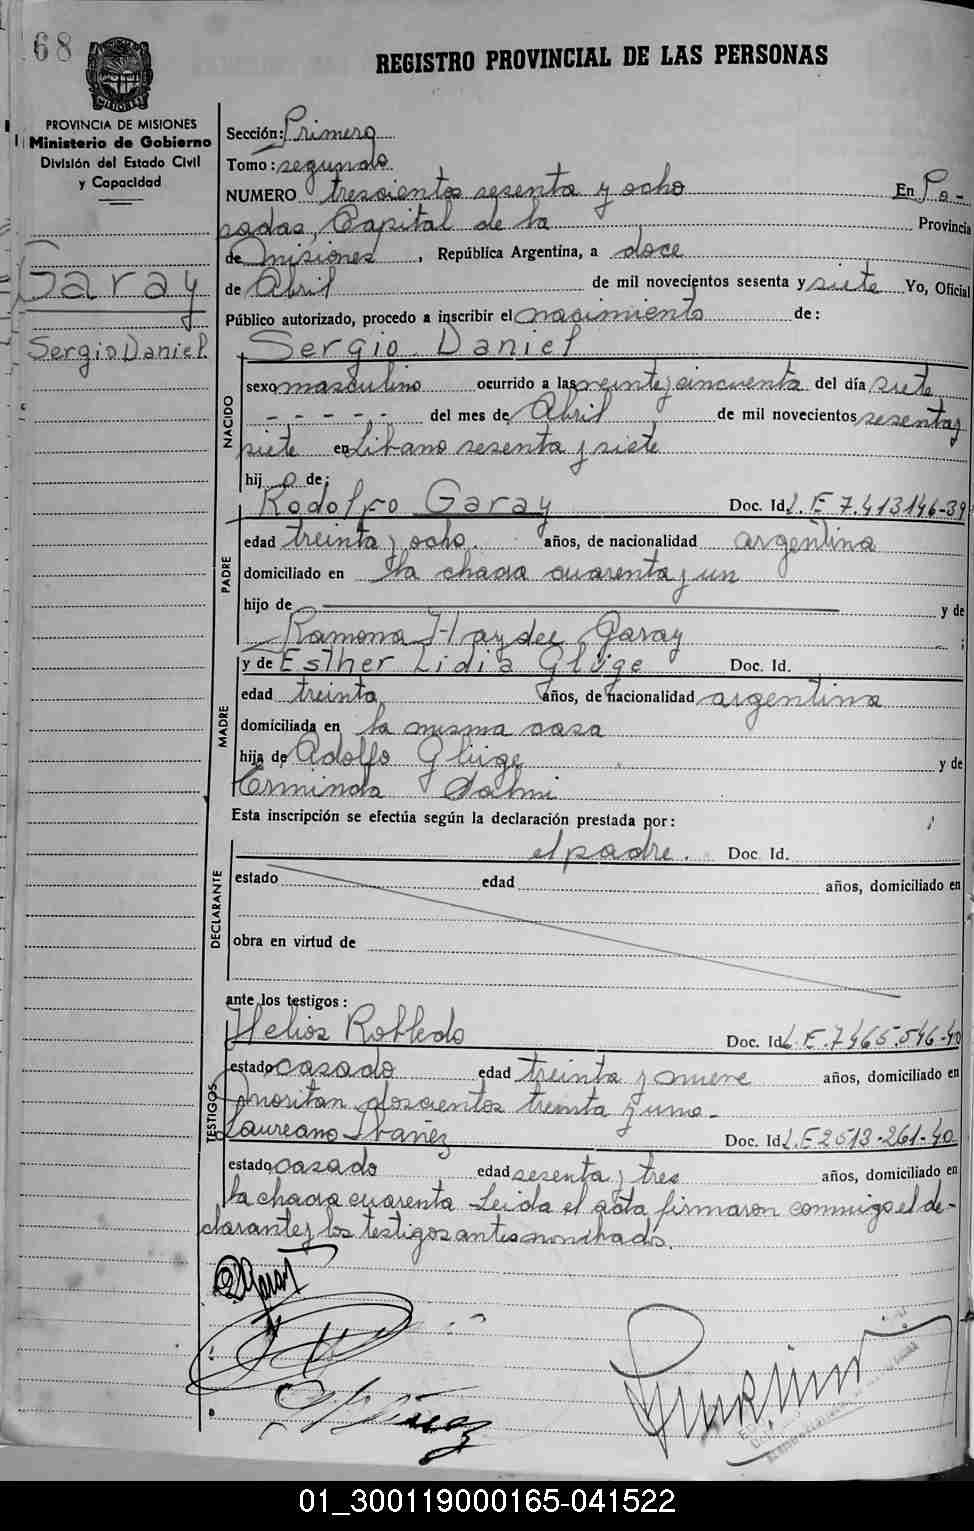 68
REGISTRO PROVINCIAL DE LAS PERSONAS
PROVINCIA DE MISIONES
Ministerio de Gobierno
División del Estado Civil
y Capacidad
Garay
Sergio Daniel
Sección: Primera
Tomo: segundo
NUMERO trescientos sesenta y ocho En Po-
sadas, Capital de la Provincia
de Misiones, República Argentina, a doce
de Abril de mil novecientos sesenta y siete Yo, Oficial
Público autorizado, procedo a inscribir el nacimiento de:
Sergio Daniel
NACIDO
sexo masculino ocurrido a las veinte y cincuenta del día siete
- - - - - del mes de Abril de mil novecientos sesenta y
siete en Libano sesenta y siete
hij o de:
Rodolfo Garay Doc. Id. L.E 7.413146-39
PADRE
edad treinta y ocho. años, de nacionalidad argentina
domiciliado en la chacra cuarenta y un
hijo de y de
Ramona Haydee Garay ;
y de Esther Lidia Glüge Doc. Id.
MADRE
edad treinta años, de nacionalidad argentina
domiciliada en la misma casa
hija de Adolfo Glüge y de
Erminda
Esta inscripción se efectúa según la declaración prestada por:
el padre. Doc. Id.
DECLARANTE
estado edad años, domiciliado en
obra en virtud de
ante los testigos:
TESTIGOS
Helios Robledo Doc. Id. L.E.7465.546-40
estado casado edad treinta y nueve años, domiciliado en
doscientos treinta y uno-
Laureano Ibañez Doc. Id. L.E 2513-261-40
estado casado edad sesenta y tres años, domiciliado en
la chacra cuarenta - Leida el acta firmaron conmigo el de-
clarante y los testigos antes nombrados.
01_300119000165-041522